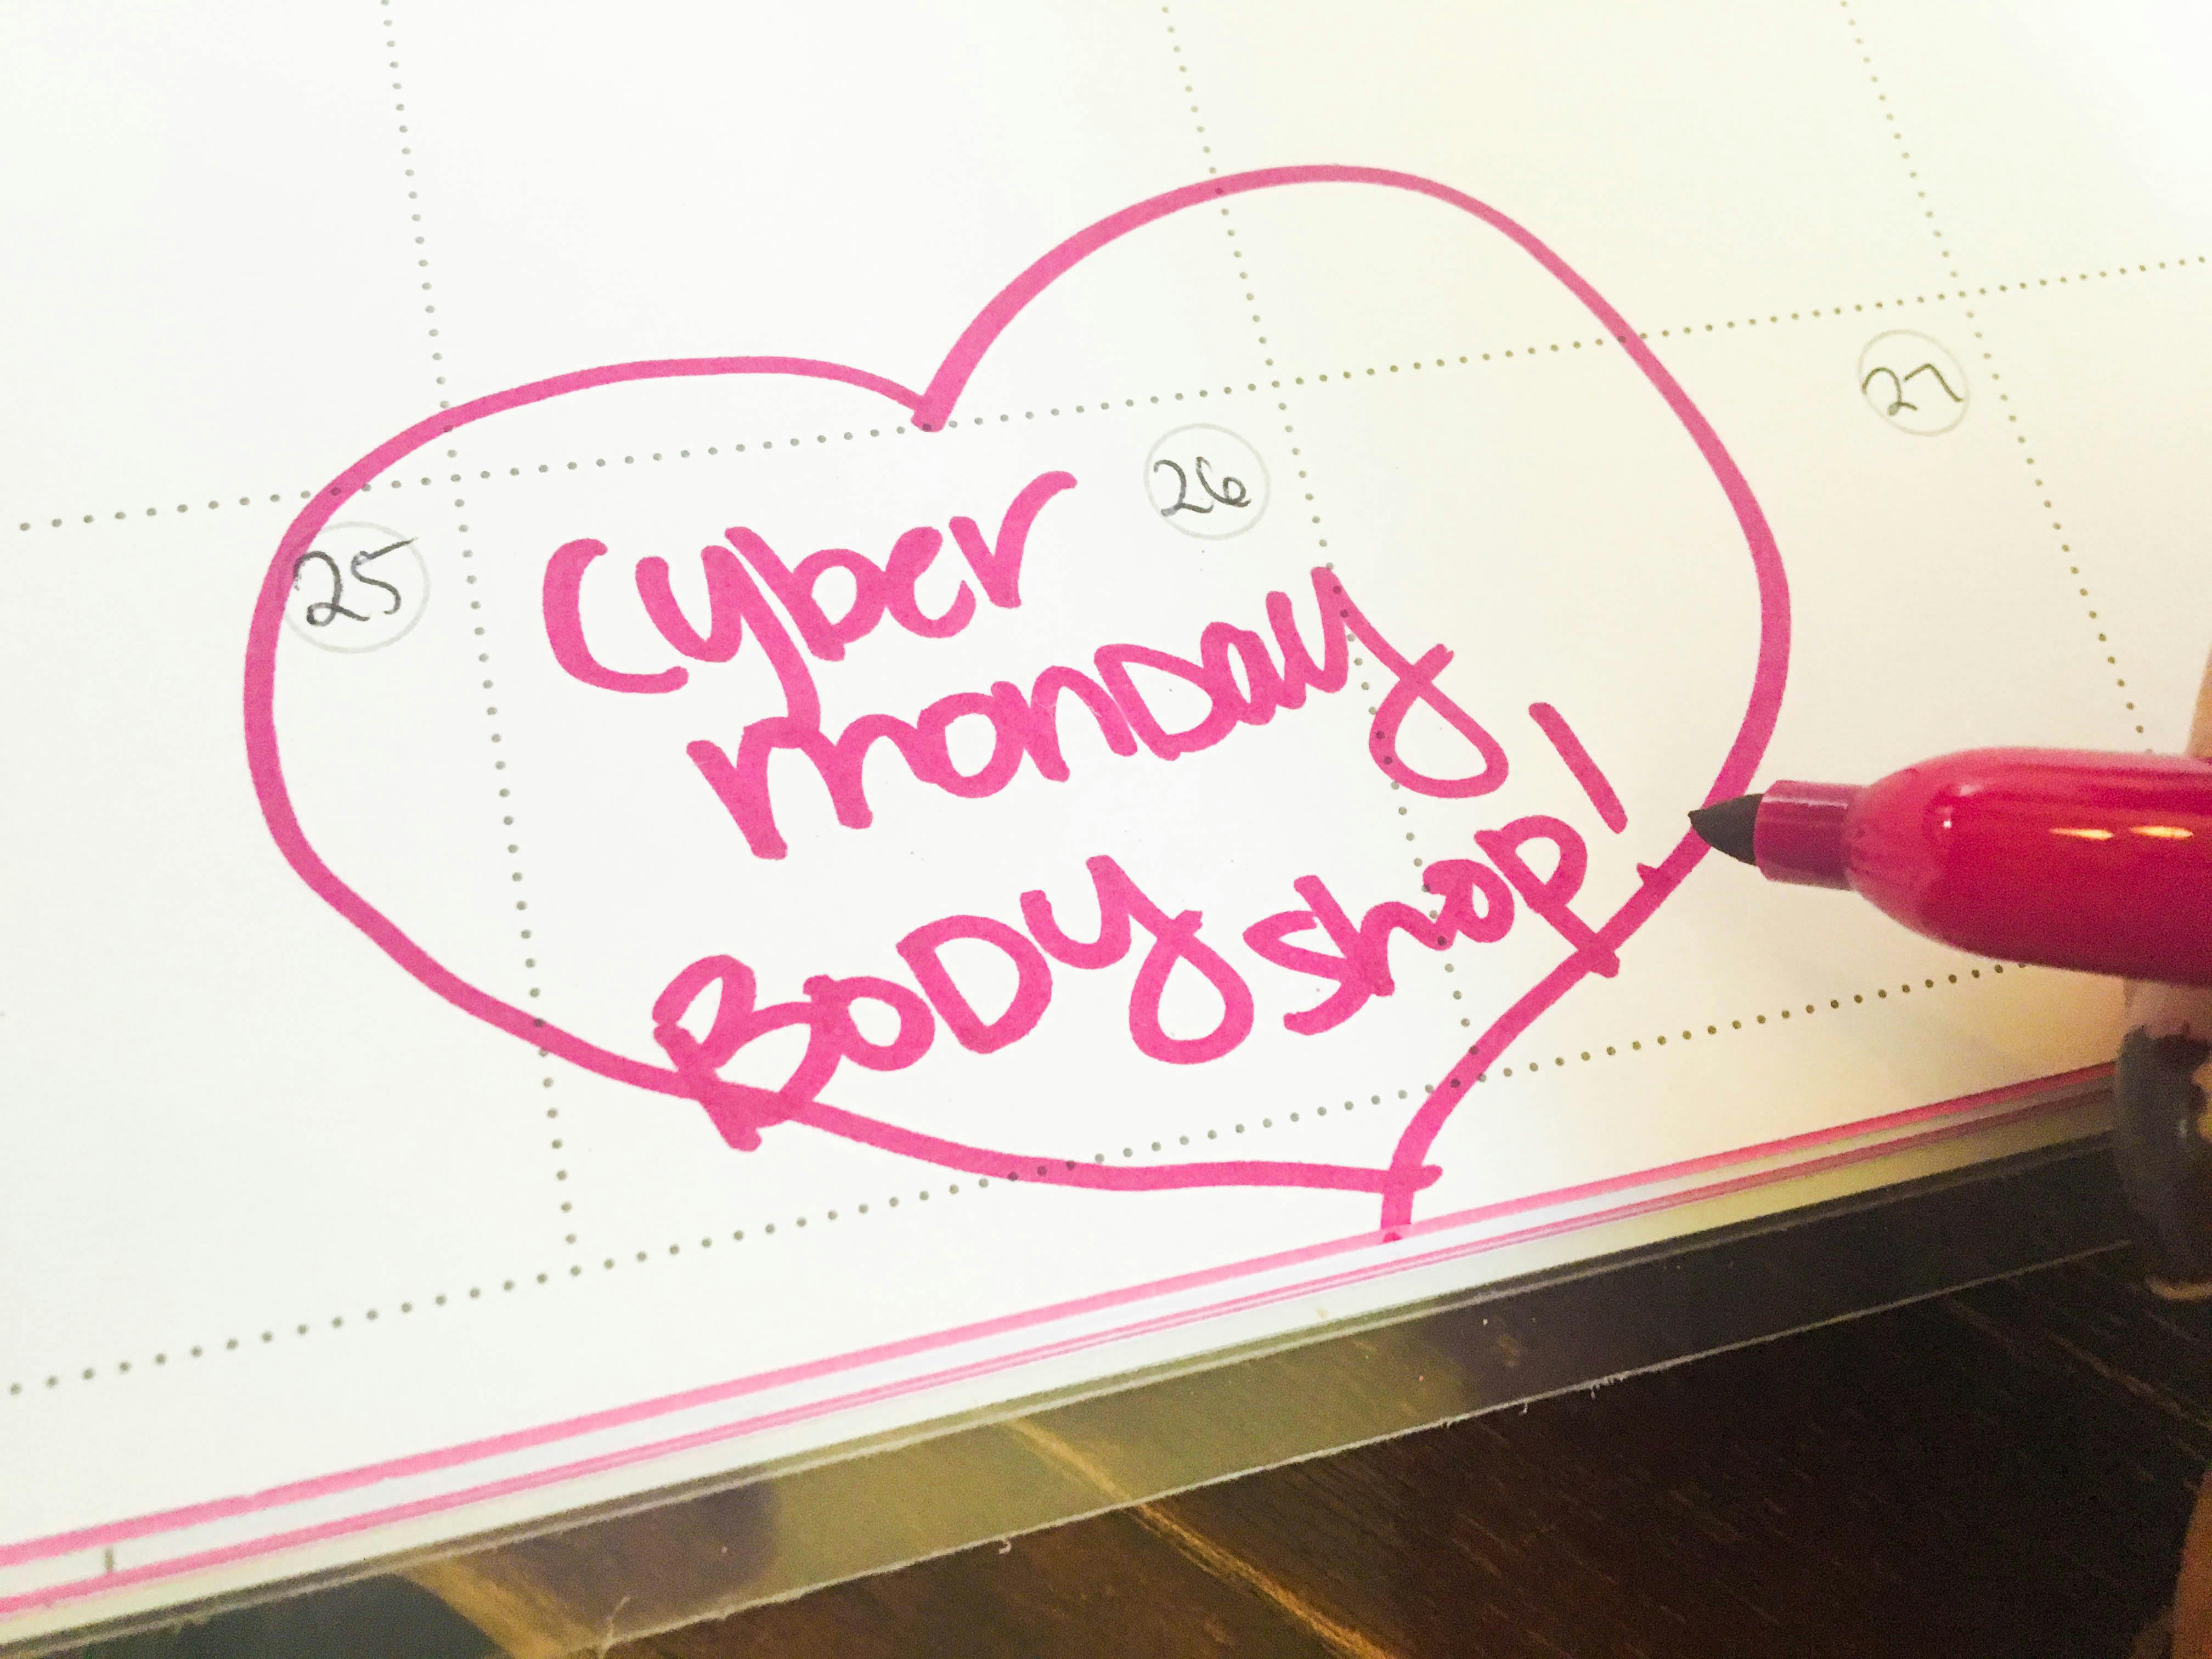 25
26
27
Cyber
monday
Body shop!